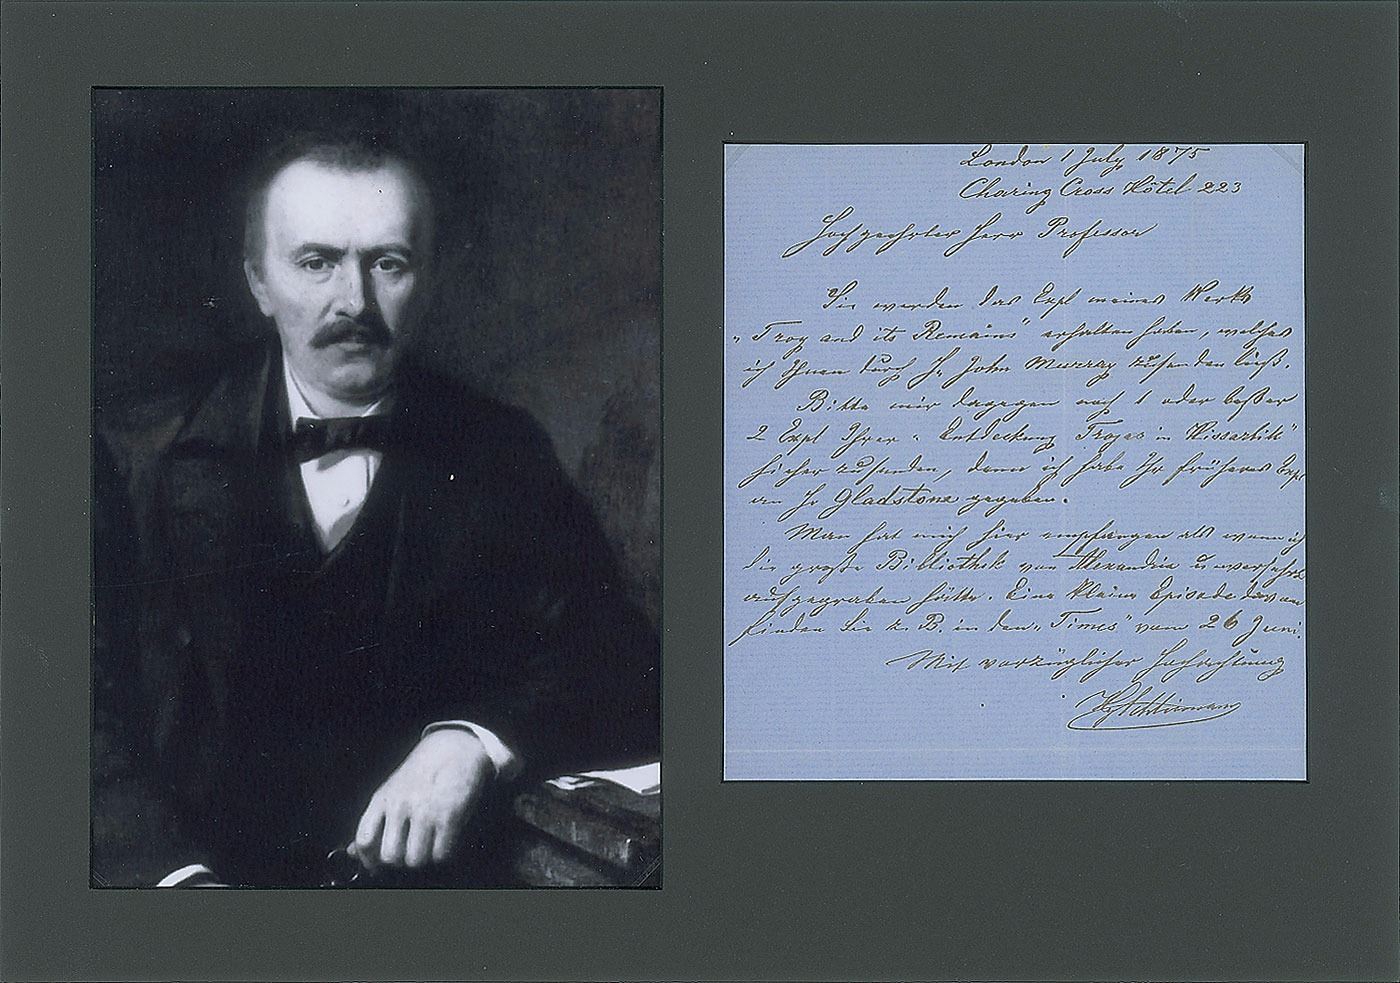 London 1 July 1875
Charing Cross Hôtel 223
Hochgeehrter Herr Professor
Sie werden das Expl meines Werks
„Troy and its Remains" erhalten haben, welches
ich Ihnen durch H. John Murray zusenden ließ.
Bitte mir dagegen noch 1 oder besser
2 Expl Ihrer „Entdeckung Trojas in Hissarlik"
hieher zu senden, denn ich habe Ihr früheres Expl
an Hr Gladstone gegeben.
Man hat mich hier empfangen als wenn ich
die große Bibliothek von Alexandria unversehrt
aufgegraben hätte. Eine kleine Episode davon
finden Sie z. B. in den „Times" vom 26 Juni.
Mit vorzüglicher Hochachtung
Hy Schliemann